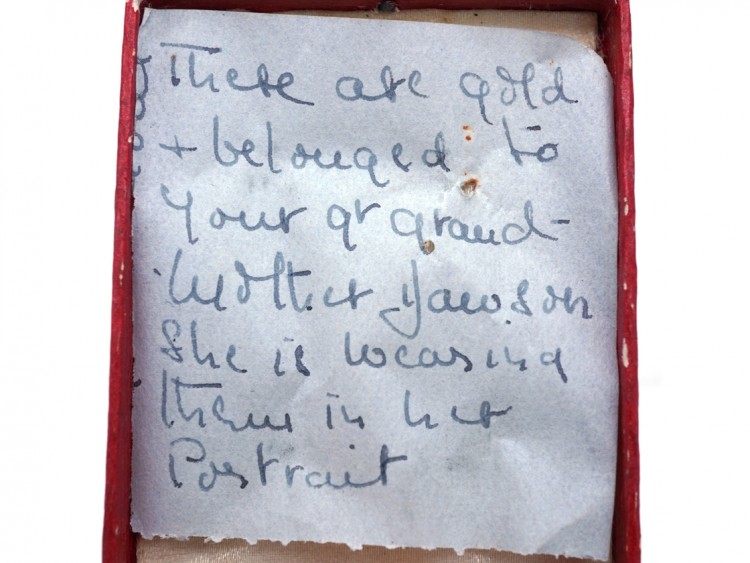 These are gold
+ belonged to
your gr grand-
Mother Dawson
She is wearing
them in her
Portrait